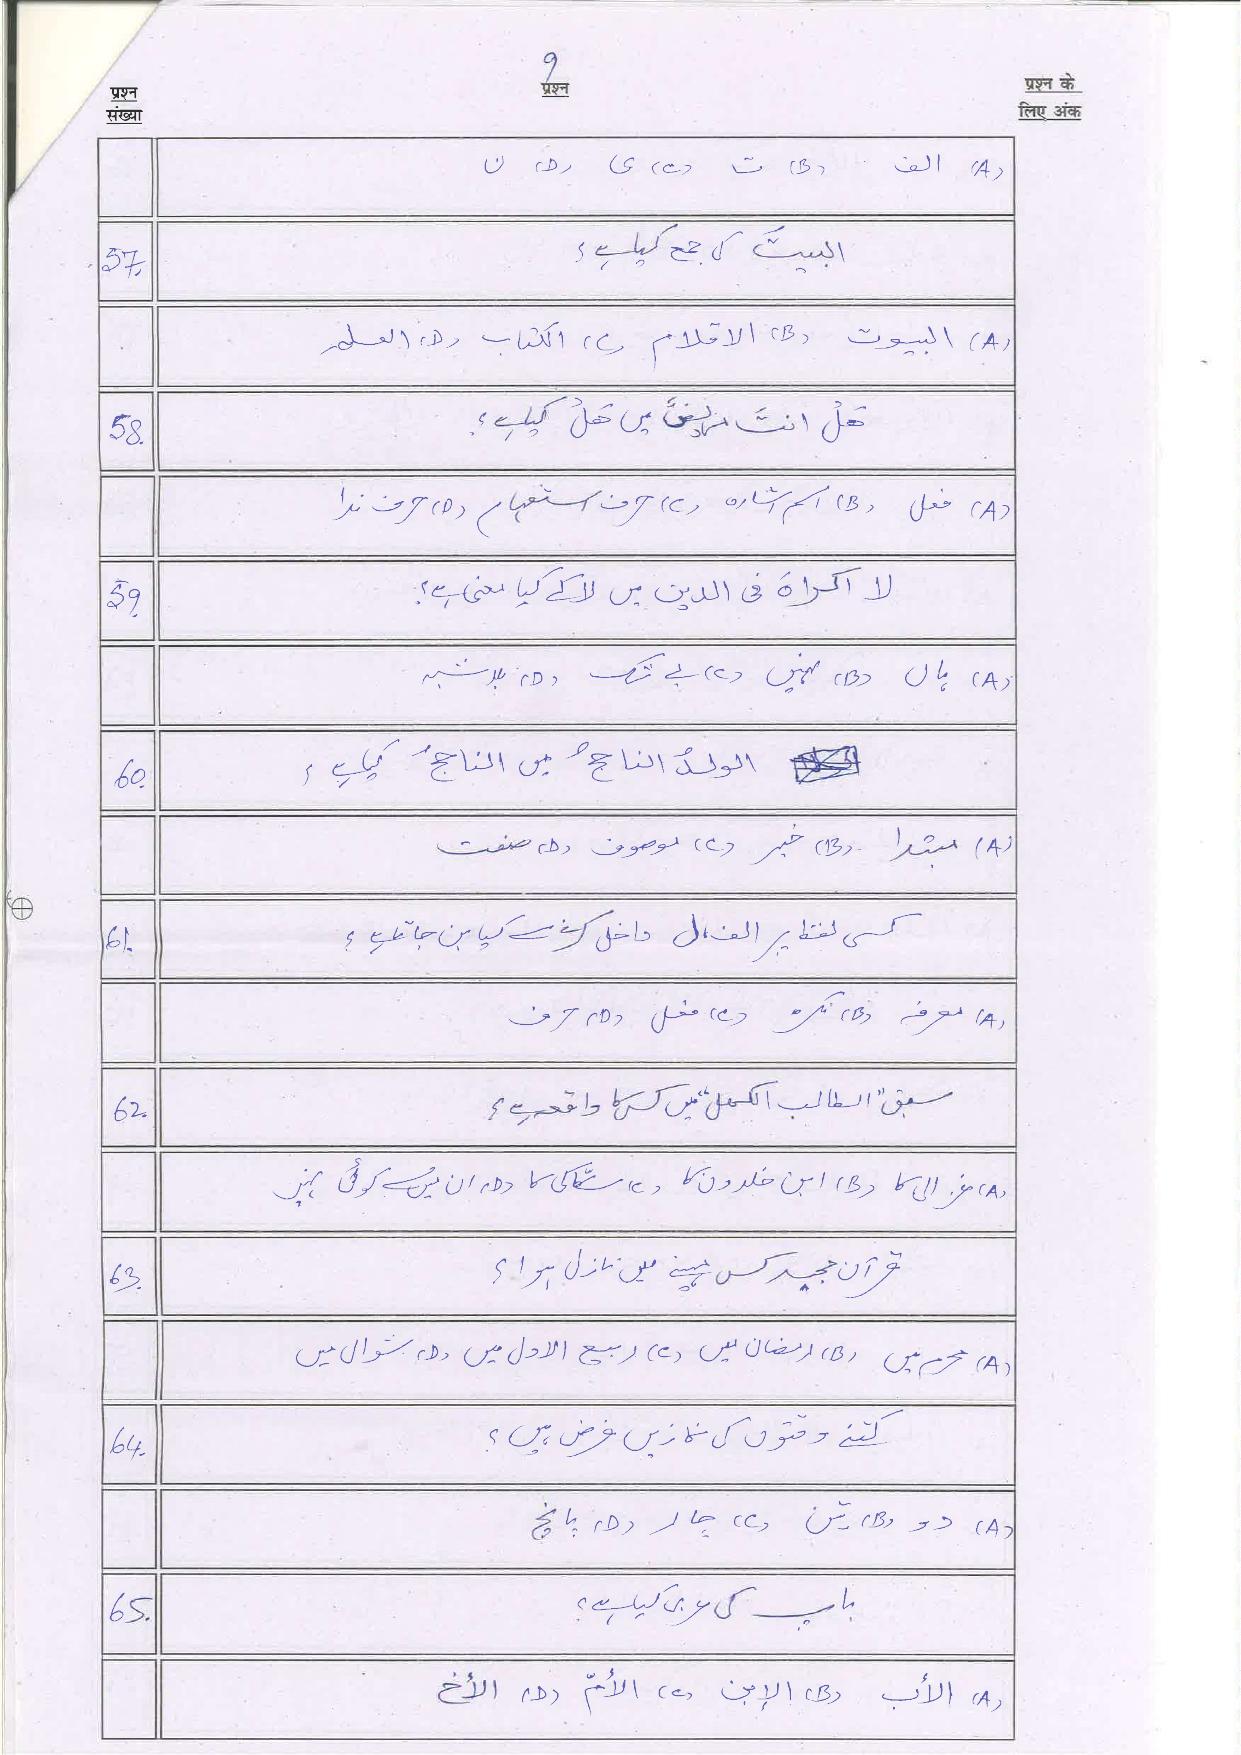 9
प्रश्न संख्या
प्रश्न
प्रश्न के लिए अंक
(A) الف (B) ت (C) ی (D) ن
57. البیتُ کی جمع کیا ہے؟
(A) البیوت (B) الاقلام (C) الکتاب (D) العلم
58. ھَلْ انتَ مریضٌ میں ھَلْ کیا ہے؟
(A) فعل (B) اسم اشارہ (C) حرف استفہام (D) حرف ندا
59. لا اکراہَ فی الدین میں لا کے کیا معنی ہے؟
(A) ہاں (B) نہیں (C) بے شک (D) بلا شبہ
60. الولدُ الناجحُ میں الناجحُ کیا ہے؟
(A) مبتدا (B) خبر (C) موصوف (D) صفت
61. کسی لفظ پر الف، ال داخل کرنے سے کیا بن جاتا ہے؟
(A) معرفہ (B) نکرہ (C) فعل (D) حرف
62. سبق "الطالب الکھل" میں کس کا واقعہ ہے؟
(A) غزالی کا (B) ابن خلدون کا (C) سکّاکی کا (D) ان میں سے کوئی نہیں
63. قرآن مجید کس مہینے میں نازل ہوا؟
(A) محرم میں (B) رمضان میں (C) ربیع الاول میں (D) شوال میں
64. کتنے وقتوں کی نمازیں فرض ہیں؟
(A) دو (B) تین (C) چار (D) پانچ
65. باپ کی عربی کیا ہے؟
(A) الأب (B) الإبن (C) الأمّ (D) الأخ